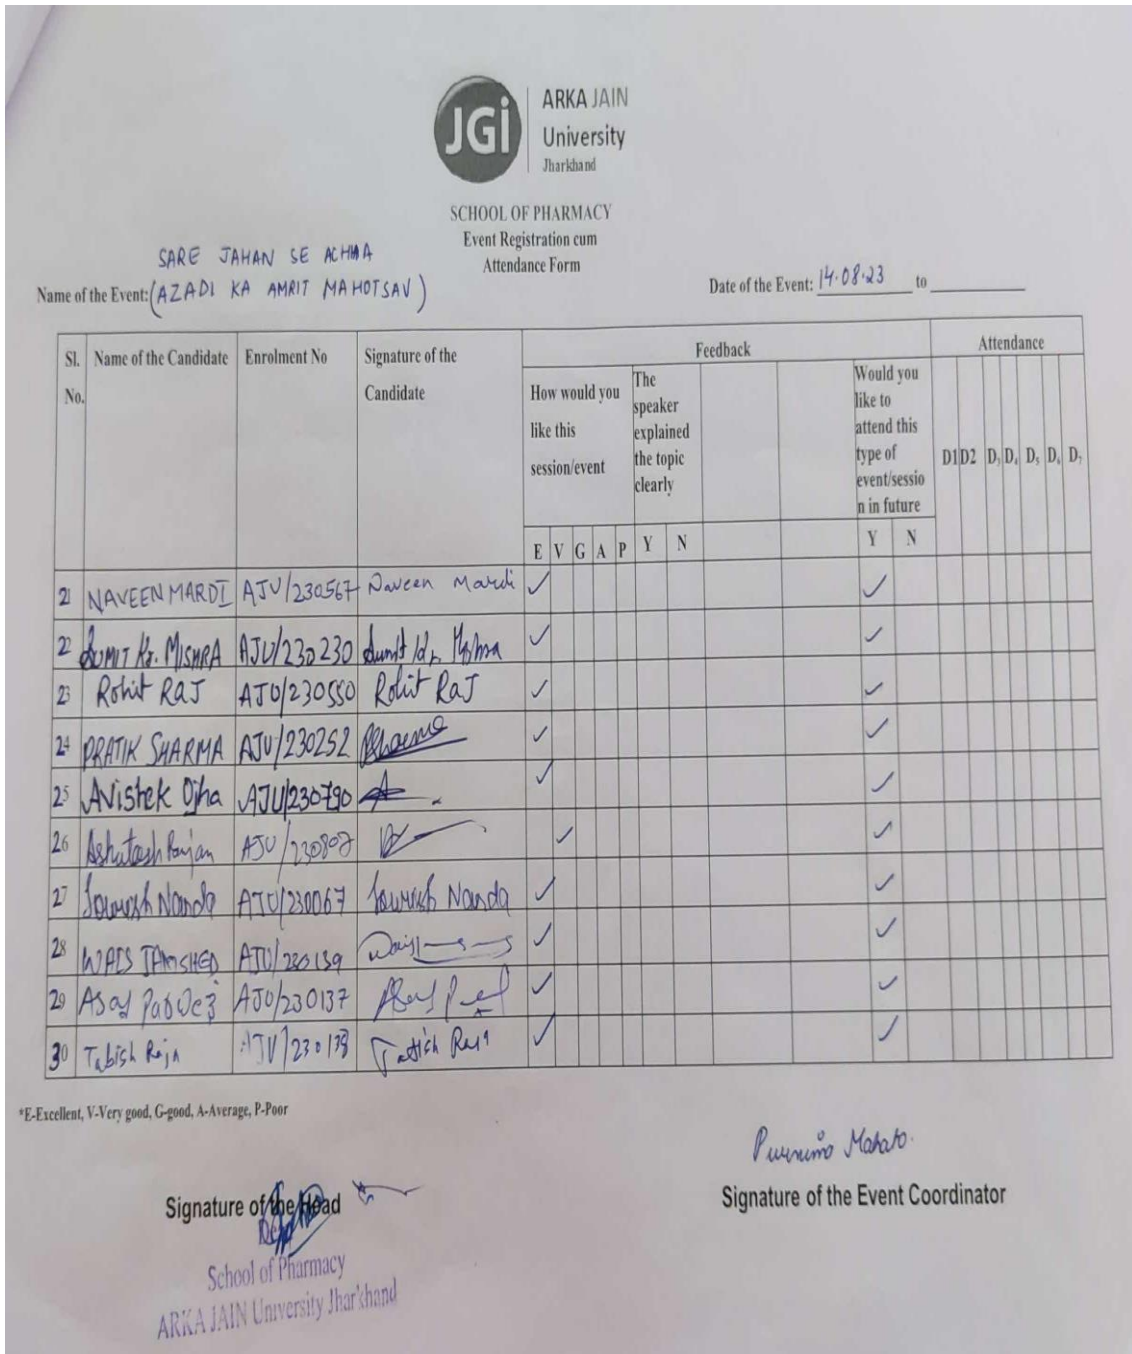 JGi
ARKA JAIN
University
Jharkhand
SCHOOL OF PHARMACY
Event Registration cum
Attendance Form
SARE JAHAN SE ACHHA
Name of the Event: (AZADI KA AMRIT MAHOTSAV)
Date of the Event: 14.08.23 to
Sl. No. Name of the Candidate Enrolment No Signature of the Candidate Feedback Attendance
How would you like this session/event
The speaker explained the topic clearly
Would you like to attend this type of event/session in future
D1 D2 D3 D4 D5 D6 D7
E V G A P Y N Y N
21 NAVEEN MARDI AJU/230567 Naveen Mardi ✓ ✓
22 SUMIT Kr. MISHRA AJU/230230 Sumit Kr. Mishra ✓ ✓
23 Rohit RaJ AJU/230550 Rohit RaJ ✓ ✓
24 PRATIK SHARMA AJU/230252 ✓ ✓
25 Avishek Ojha AJU/230790 ✓ ✓
26 Ashutosh Ranjan AJU/230807 ✓ ✓
27 Sourish Nanda AJU/230067 Sourish Nanda ✓ ✓
28 WAIS JAMSHED AJU/230139 ✓ ✓
29 AJU/230137 ✓ ✓
30 Tabish Raja AJU/230138 Tabish Raja ✓ ✓
*E-Excellent, V-Very good, G-good, A-Average, P-Poor
Purnima Mahato.
Signature of the Head
Signature of the Event Coordinator
School of Pharmacy
ARKA JAIN University Jharkhand